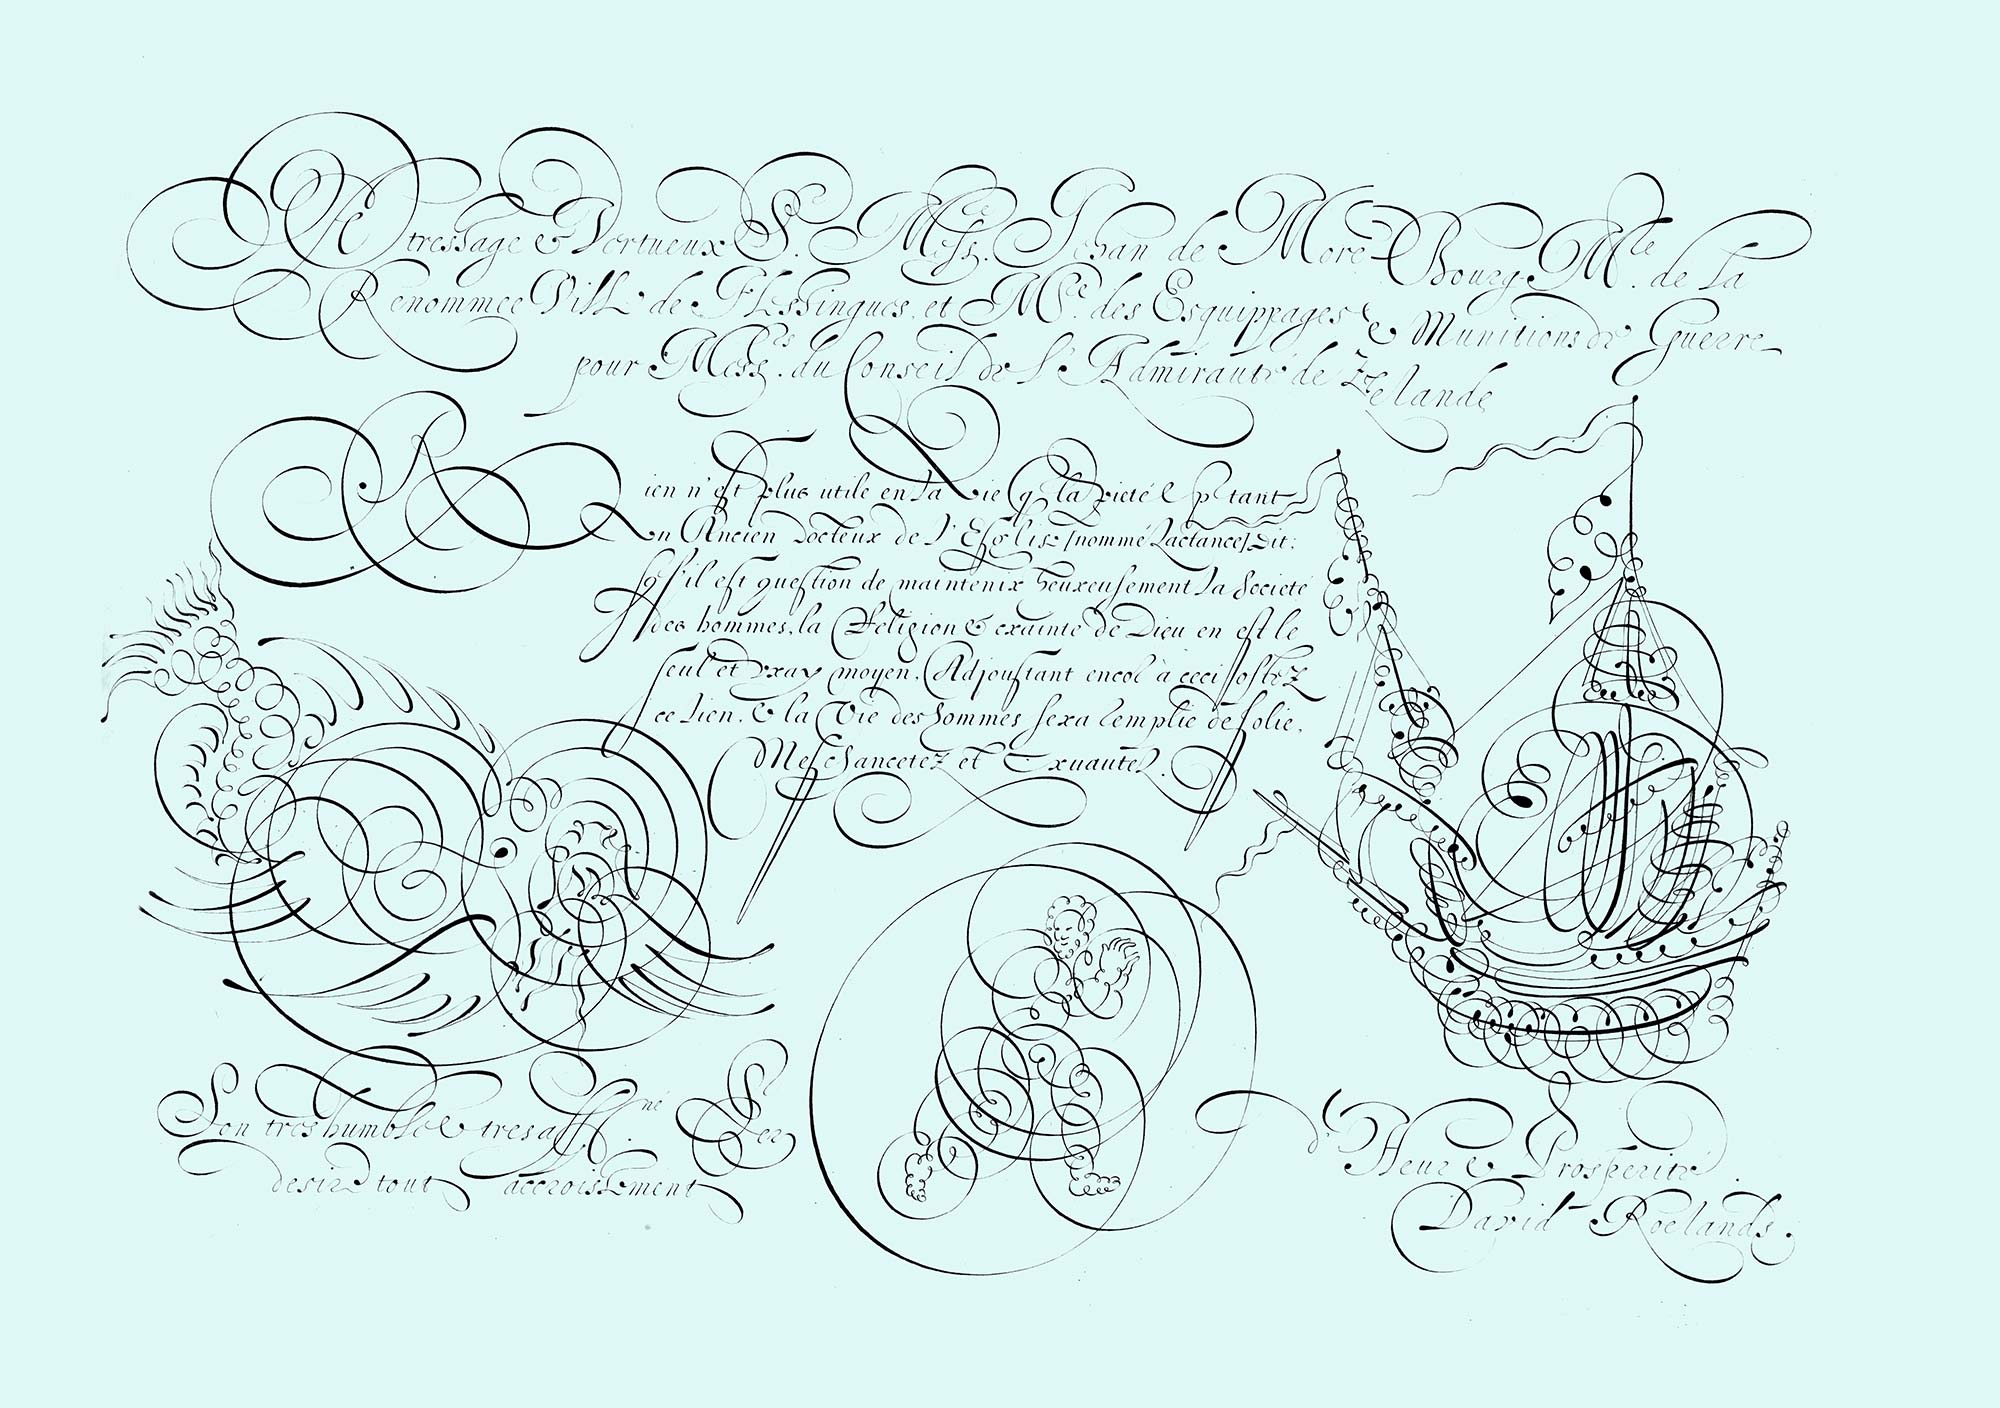 Le tressage & Vertueux Sr. Messre. Jehan de More Bourg-Mre. de la
Renommee Ville de Flessingues, et Mre. des Esquippages & Munitions de Guerre
pour Messrs. du Conseil de l'Admirauté de Zeelande
Rien n'est plus utile en la vie q la pieté & ptant
un Ancien docteur de l'Esglise [nommé Lactance] Dit:
q s'il est question de maintenir heureusement la Societé
des hommes, la Religion & crainte de Dieu en est le
seul et vray moyen. Adjoustant encor à ceci, ostez
ce lien, & la Vie des hommes sera remplie de folie,
Meschancetez et Cruautez.
Son tres humble & tres affné. Ser
desire tout accroissement
d'Heur & Prosperité.
David Roelands.